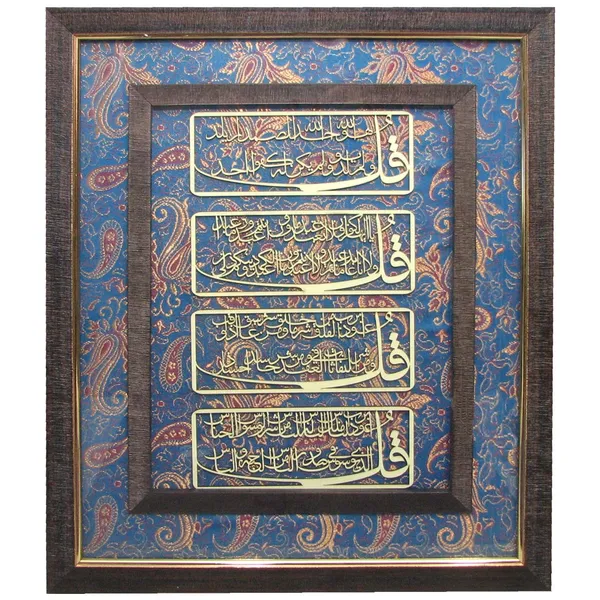 قل هو الله احد الله الصمد لم يلد
ولم يولد ولم يكن له كفوا احد
قل يا ايها الكافرون لا اعبد ما تعبدون ولا انتم عابدون ما اعبد
ولا انا عابد ما عبدتم ولا انتم عابدون ما اعبد لكم دينكم ولي دين
قل اعوذ برب الفلق من شر ما خلق ومن شر غاسق اذا وقب
ومن شر النفاثات في العقد ومن شر حاسد اذا حسد
قل اعوذ برب الناس ملك الناس اله الناس من شر الوسواس الخناس
الذي يوسوس في صدور الناس من الجنة والناس